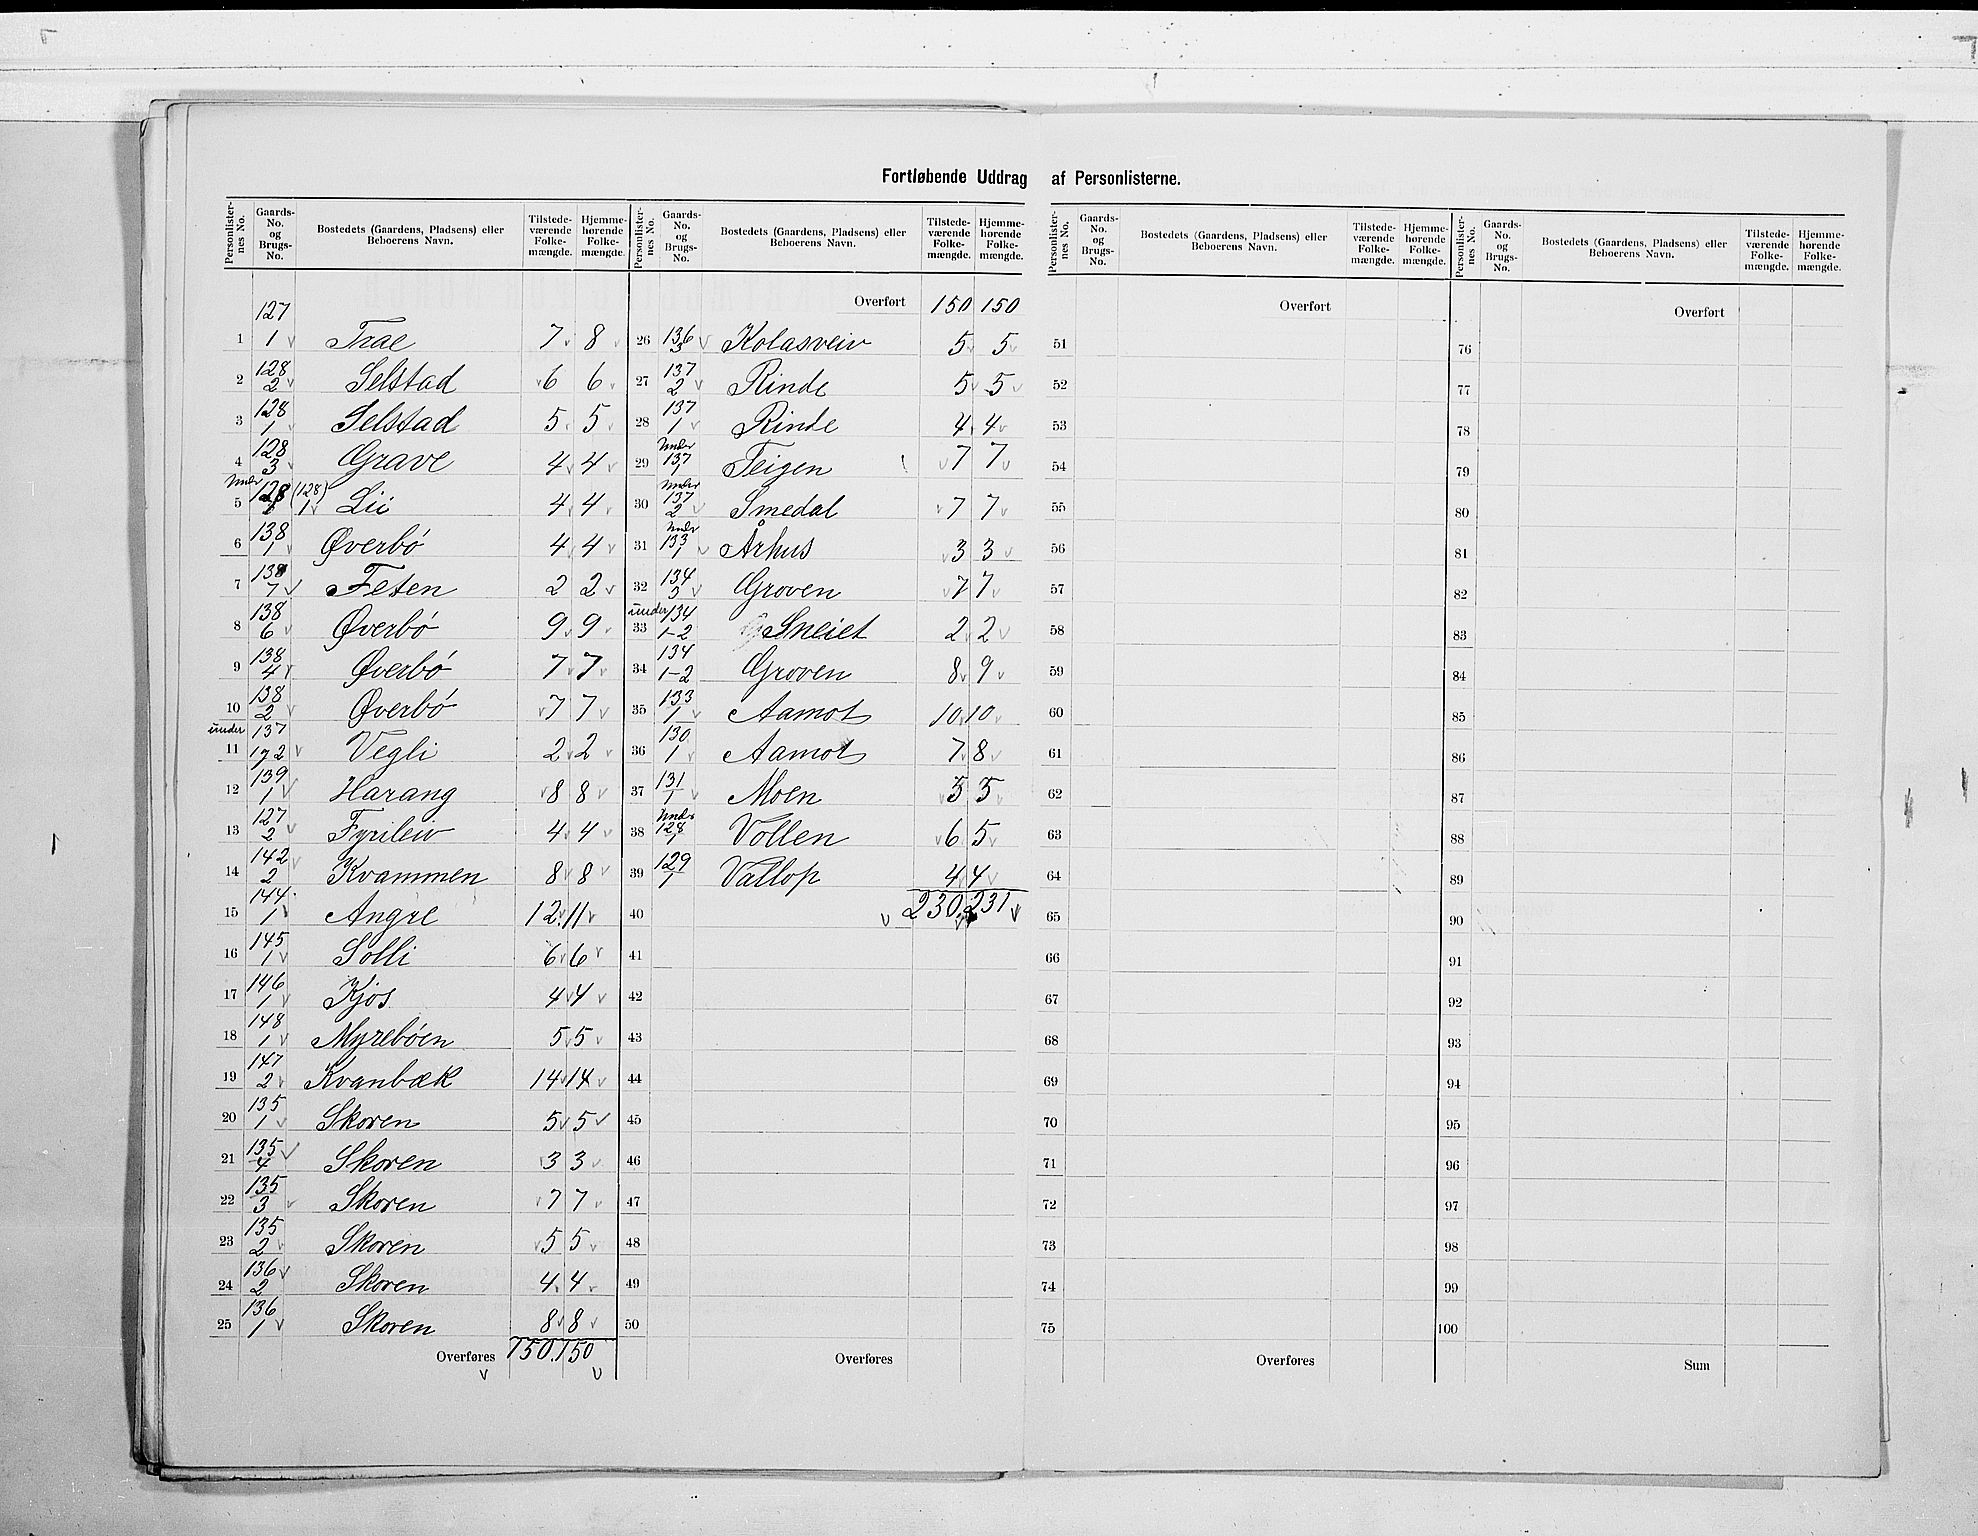 Fortløbende Uddrag af Personlisterne.
Personlister-nes No. Gaards-No. og Brugs-No. Bostedets (Gaardens, Pladsens) eller Beboerens Navn. Tilstede-værende Folke-mængde. Hjemme-hørende Folke-mængde.
1 127/1 Trae 7 8
2 128/2 Selstad 6 6
3 128/1 Selstad 5 5
4 128/3 Grave 4 4
5 Under 128/1 (128/1) Lii 4 4
6 138/1 Øverbó 4 4
7 138/7 Feten 2 2
8 138/6 Øverbó 9 9
9 138/4 Øverbó 7 7
10 138/2 Øverbó 7 7
11 under 137/1 & 2 Vegli 2 2
12 139/1 Harang 8 8
13 127/2 Fyrileiv 4 4
14 142/2 Kvammen 8 8
15 144/1 Angre 12 11
16 145/1 Solli 6 6
17 146/1 Kjos 4 4
18 148/1 Myrebóen 5 5
19 147/2 Kvanbæk 14 14
20 135/1 Skoren 5 5
21 135/4 Skoren 3 3
22 135/3 Skoren 7 7
23 135/2 Skoren 5 5
24 136/2 Skoren 4 4
25 136/1 Skoren 8 8
Overføres 150 150
Personlister-nes No. Gaards-No. og Brugs-No. Bostedets (Gaardens, Pladsens) eller Beboerens Navn. Tilstede-værende Folke-mængde. Hjemme-hørende Folke-mængde.
Overført 150 150
26 136/3 Kolasveiv 5 5
27 137/2 Rinde 5 5
28 137/1 Rinde 4 4
29 Under 137/1 Teigen 7 7
30 Under 137/2 Smedal 7 7
31 Under 133/1 Århus 3 3
32 134/3 Groven 7 7
33 under 134/1-2 Sneiet 2 2
34 134/1-2 Groven 8 9
35 133/1 Aamot 10 10
36 130/1 Aamot 7 8
37 131/1 Moen 5 5
38 Under 128/1 Vollen 6 5
39 129/1 Vallop 4 4
40 230 231
41
42
43
44
45
46
47
48
49
50
Overføres
Personlister-nes No. Gaards-No. og Brugs-No. Bostedets (Gaardens, Pladsens) eller Beboerens Navn. Tilstede-værende Folke-mængde. Hjemme-hørende Folke-mængde.
Overført
51
52
53
54
55
56
57
58
59
60
61
62
63
64
65
66
67
68
69
70
71
72
73
74
75
Overføres
Personlister-nes No. Gaards-No. og Brugs-No. Bostedets (Gaardens, Pladsens) eller Beboerens Navn. Tilstede-værende Folke-mængde. Hjemme-hørende Folke-mængde.
Overført
76
77
78
79
80
81
82
83
84
85
86
87
88
89
90
91
92
93
94
95
96
97
98
99
100
Sum